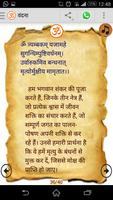 12:48
वंदना
ॐ त्र्यम्बकम् यजामहे
सुगन्धिम्पुष्टिवर्धनम्।
उर्वारुकमिव बन्धनात्
मृत्योर्मुक्षीय मामृतात।।
हम भगवान शंकर की पूजा
करते हैं, जिनके तीन नेत्र हैं,
जो प्रत्येक श्वास में जीवन
शक्ति का संचार करते हैं,
जो सम्पूर्ण जगत का
पालन-पोषण अपनी
शक्ति से कर रहे हैं,
उनसे हमारी प्रार्थना है
39/40